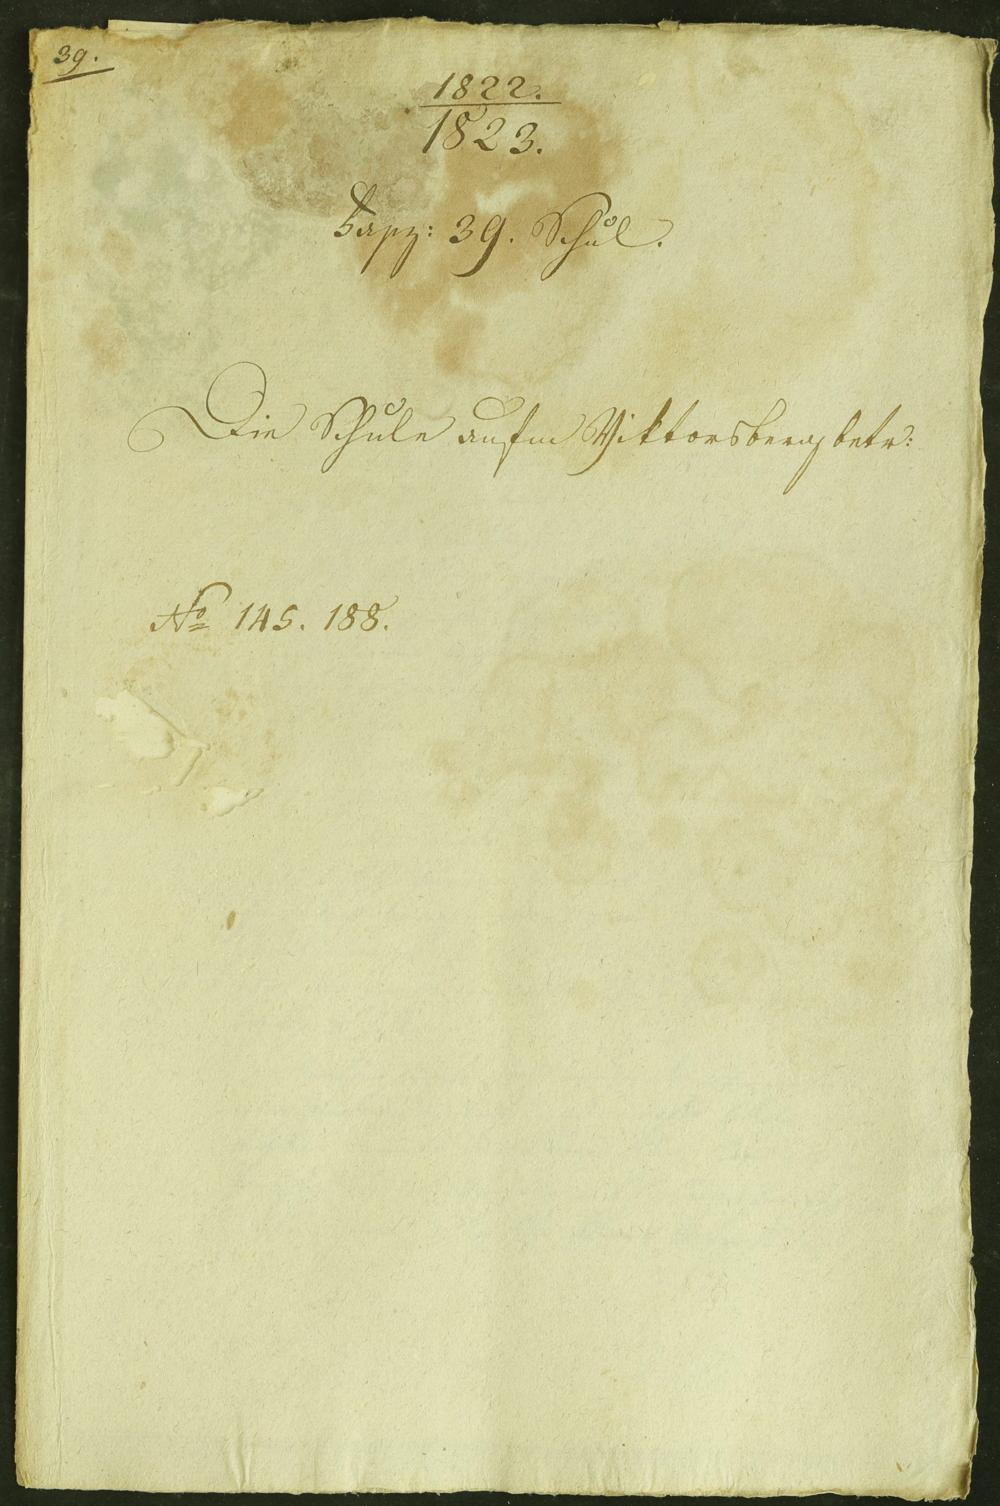 39.
1822.
1823.
Fasz: 39. Schul.
Die Schule aufm Viktorsberg betr:
No 145. 188.